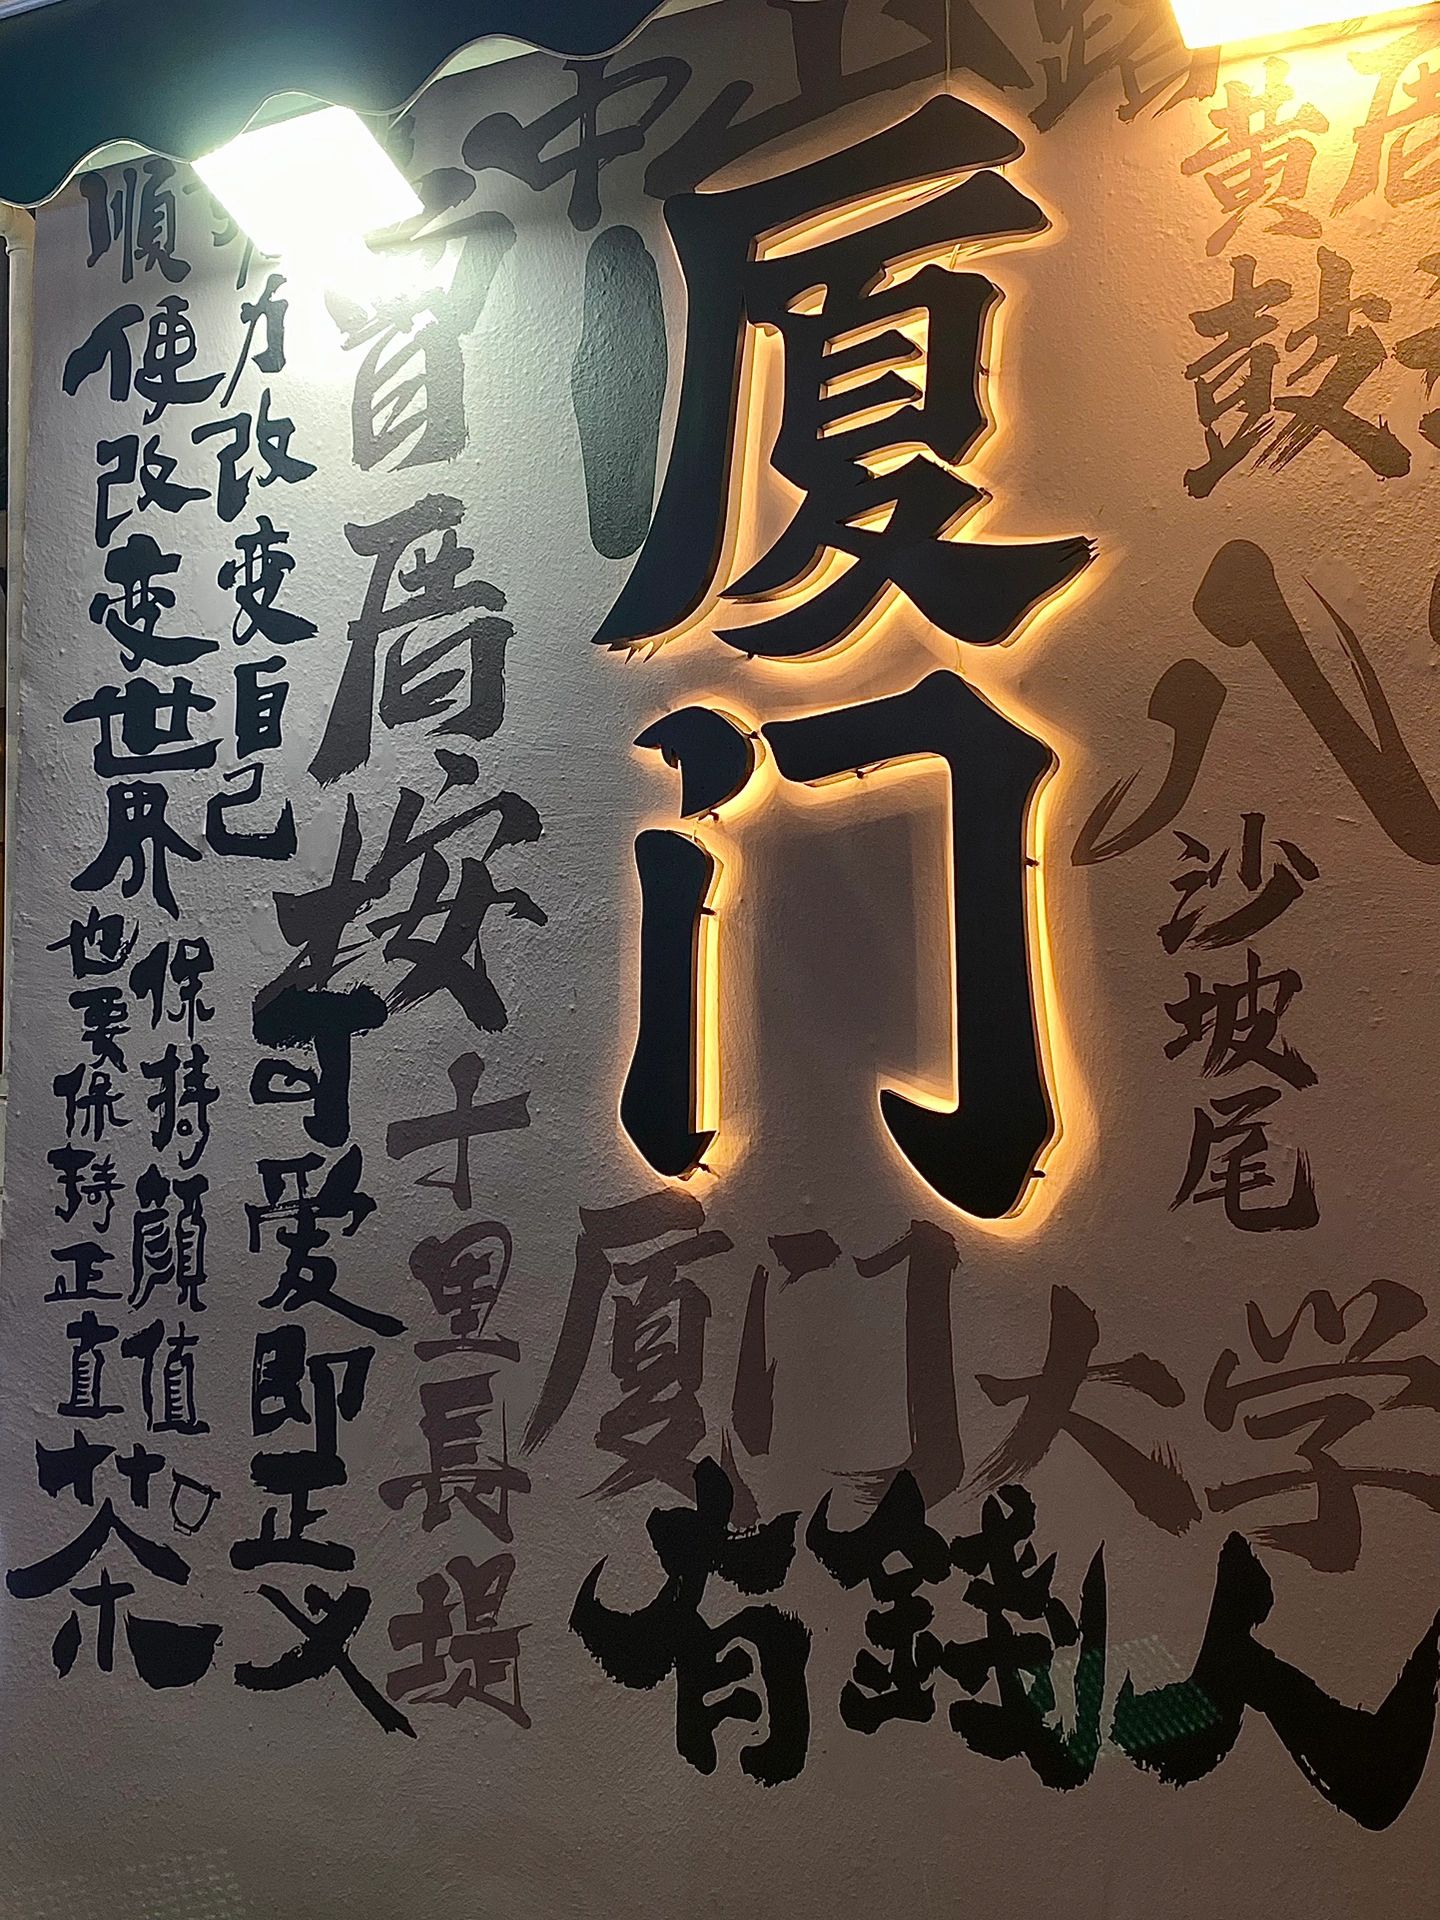 中山路
厦门
黄厝
鼓
八
沙坡尾
厦门大学
有錢人
曾厝垵
十里長堤
力改变自己
順便改变世界
保持顔值
也要保持正直
可爱即正义
茶